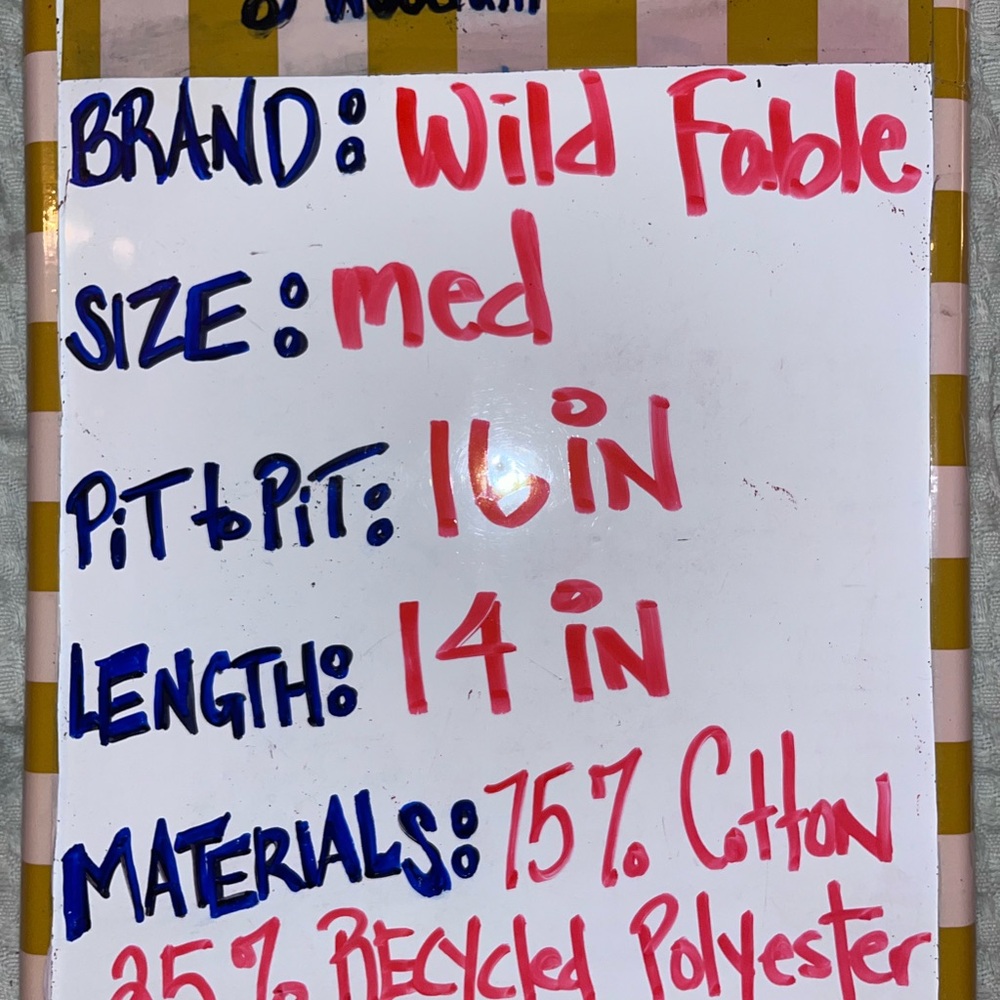 BRAND: Wild Fable
SIZE: med
PiT to PiT: 16 iN
LENGTH: 14 iN
MATERIALS: 75% Cotton
25% RECycled Polyester